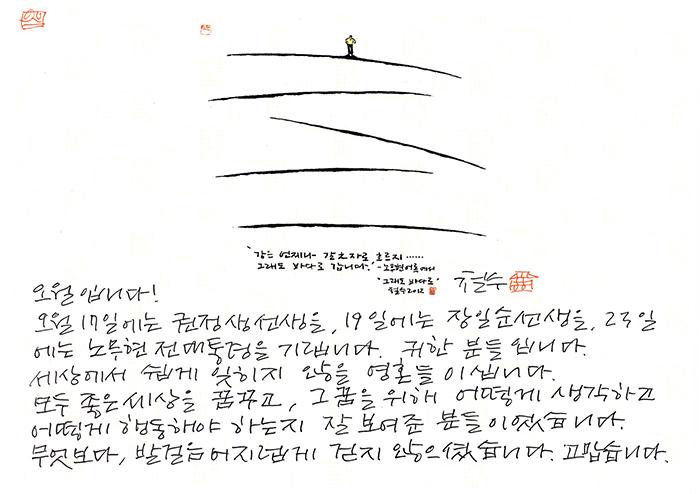 "강은 언제나 갈 之 자로 흐르지……
그래도 바다로 갑니다." -노무현어록에서
"그래도 바다로"
철수 2012
철수
오월입니다!
오월 17일에는 권정생선생을, 19일에는 장일순선생을, 23일
에는 노무현 전대통령을 기립니다. 귀한 분들입니다.
세상에서 쉽게 잊히지 않을 영혼들이십니다.
모두 좋은세상을 꿈꾸고, 그 꿈을 위해 어떻게 생각하고
어떻게 행동해야 하는지 잘 보여준 분들이었습니다.
무엇보다, 발걸음 어지럽게 걷지 않으셨습니다. 고맙습니다.